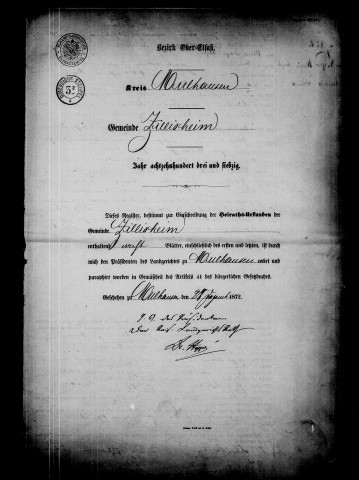 Bezirk Ober-Elsaß.
Kreis Mülhausen
Gemeinde Zillisheim
Jahr achtzehnhundert drei und siebzig.
Dieses Register, bestimmt zur Einschreibung der Heiraths-Urkunden der
Gemeinde Zillisheim
enthaltend Blätter, einschließlich des ersten und letzten, ist durch
mich den Präsidenten des Landgerichtes zu Mülhausen cotirt und
paraphirt worden in Gemäßheit des Artikels 41 des bürgerlichen Gesetzbuches.
Geschehen zu Mülhausen den 1872.